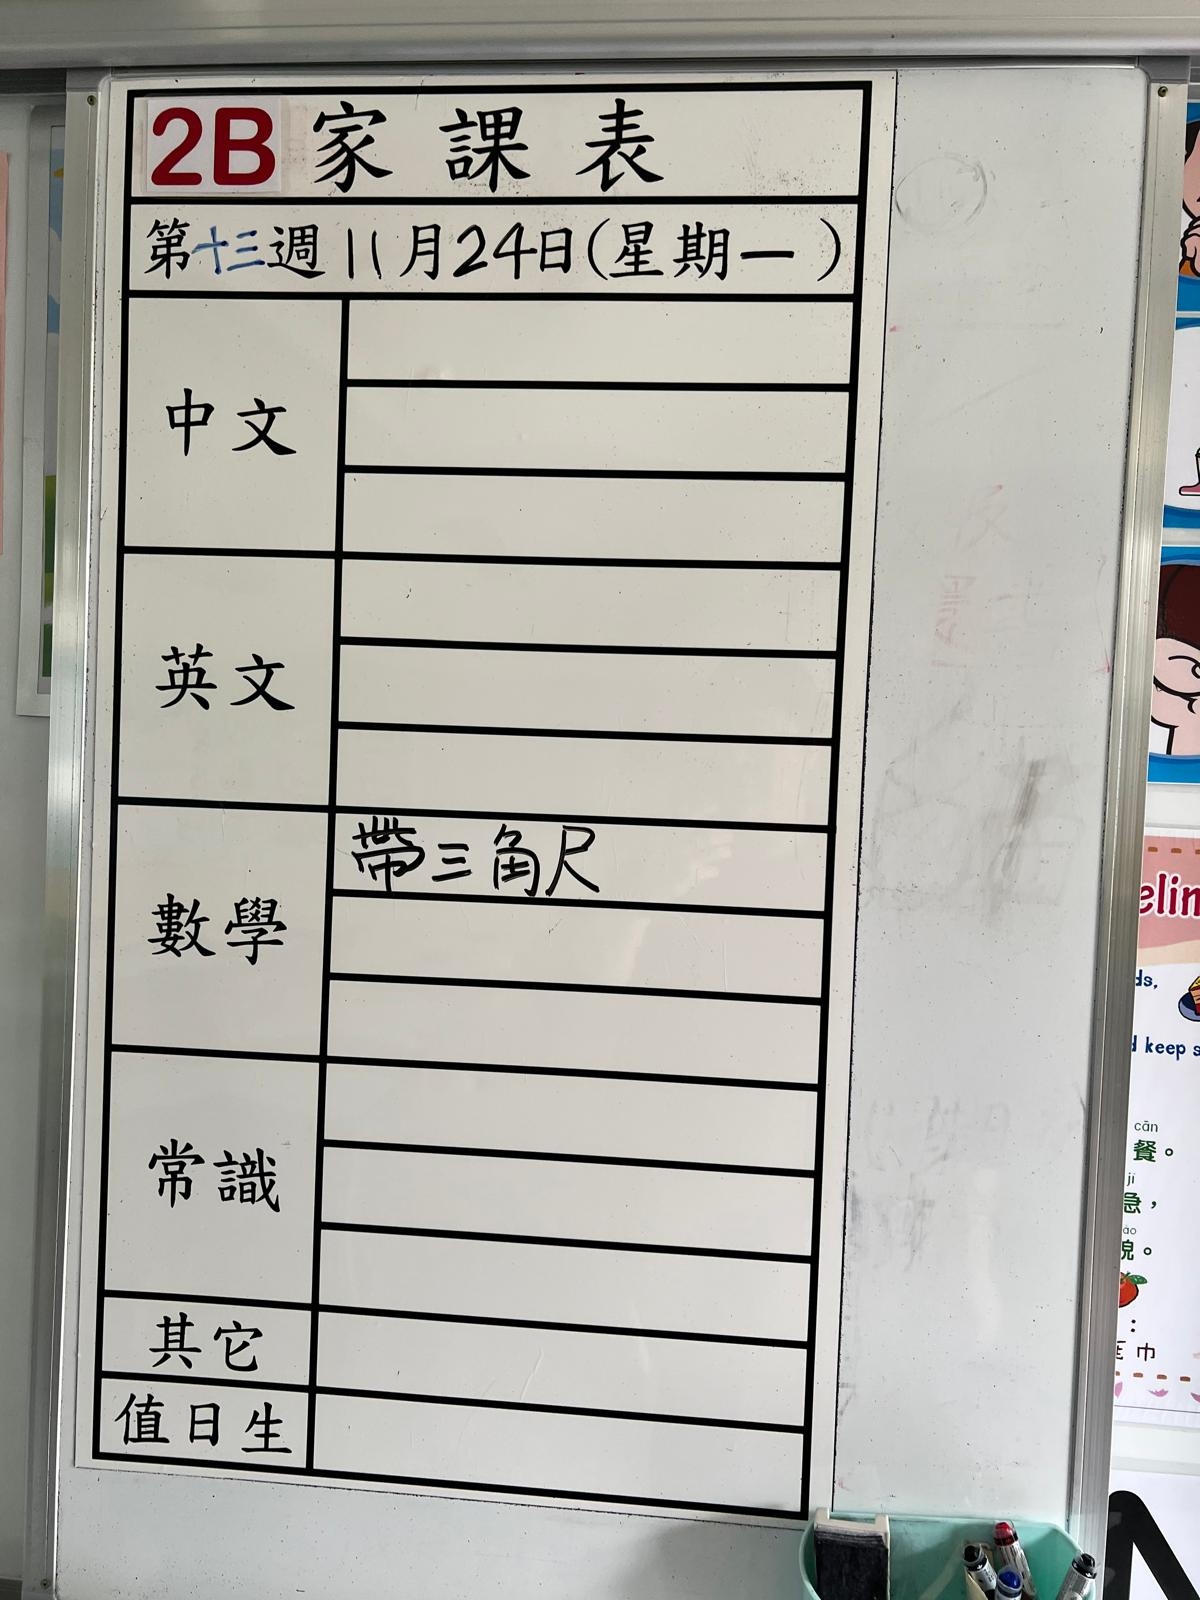 2B 家課表
第十三週 11月24日(星期一)
中文
英文
帶三角尺
數學
常識
其它
值日生
elin
ds,
d keep s
cān
餐。
jí
急，
貌。
：
巾